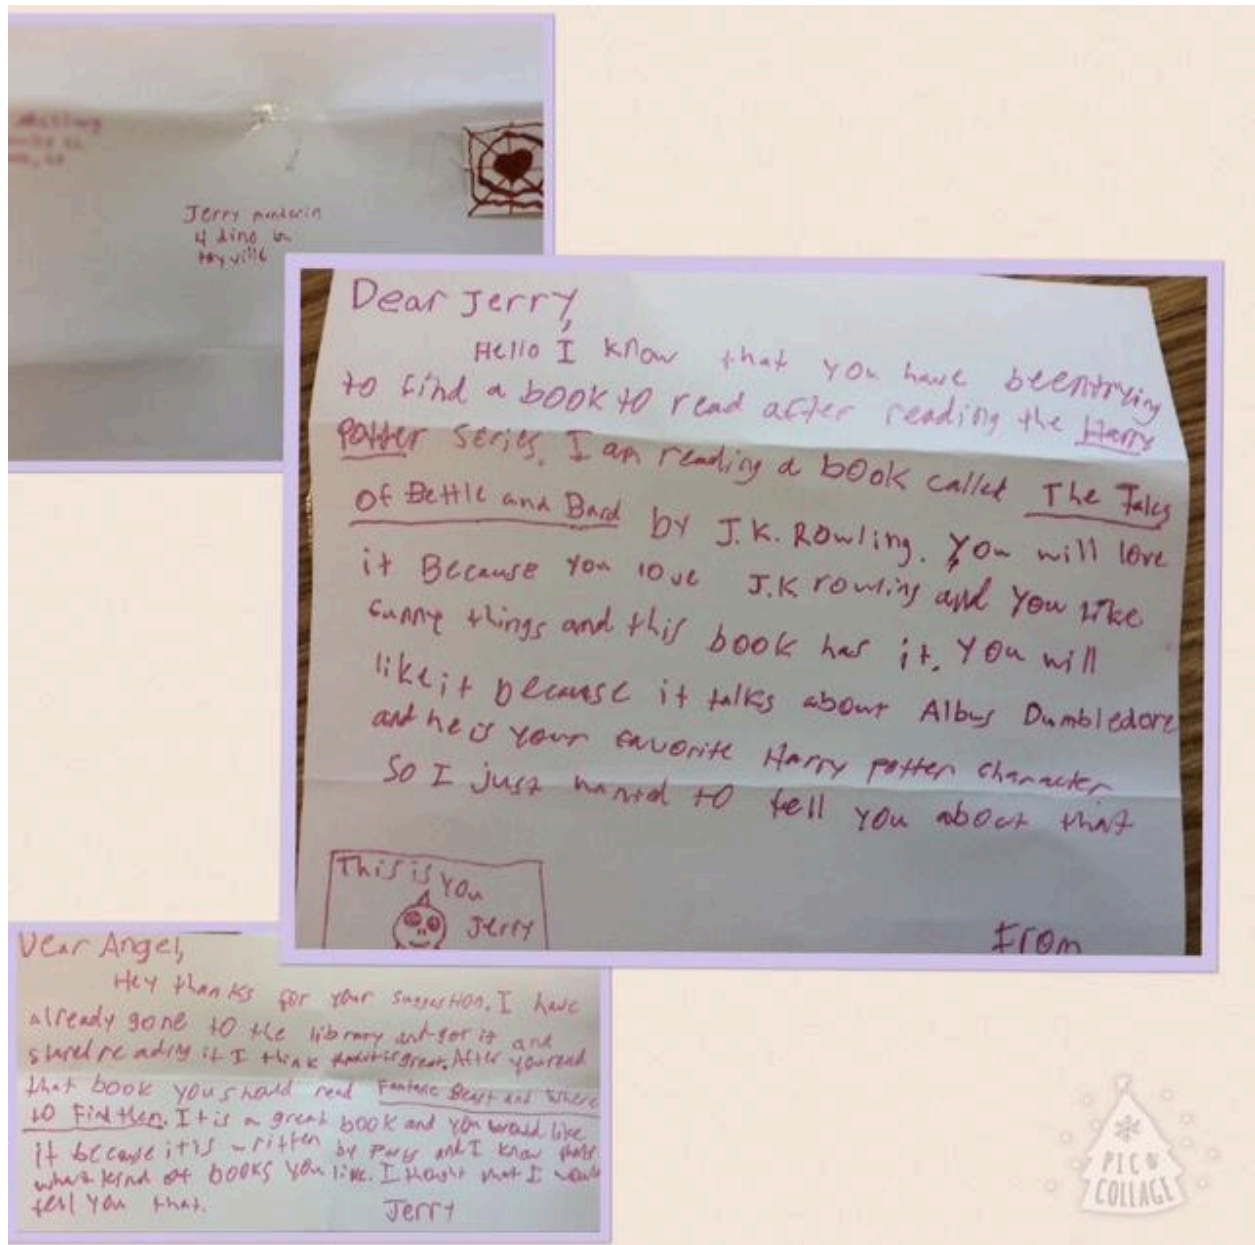 Jerry manderin
4 dino ln
toyville
Dear Jerry,
Hello I know that you have beentrying
to find a book to read after reading the Harry
Potter series. I am reading a book called The Tales
of Bettle and Bard by J.K. Rowling. You will love
it Because you love J.K rowling and you like
funny things and this book has it. You will
like it because it talks about Albus Dumbledore
and he is your favorite Harry potter character
So I just wanted to tell you about that
This is you
Jerry
From
Dear Angel,
Hey thanks for your suggestion. I have
already gone to the library and got it and
started reading it I think that it is great. After you read
that book you should read Fantasic Beast and Where
to Find them. It is a great book and you would like
it because it is written by and I know thats
what kind of books you like. I thought that I would
tell you that.
Jerry
PIC
COLLAGE